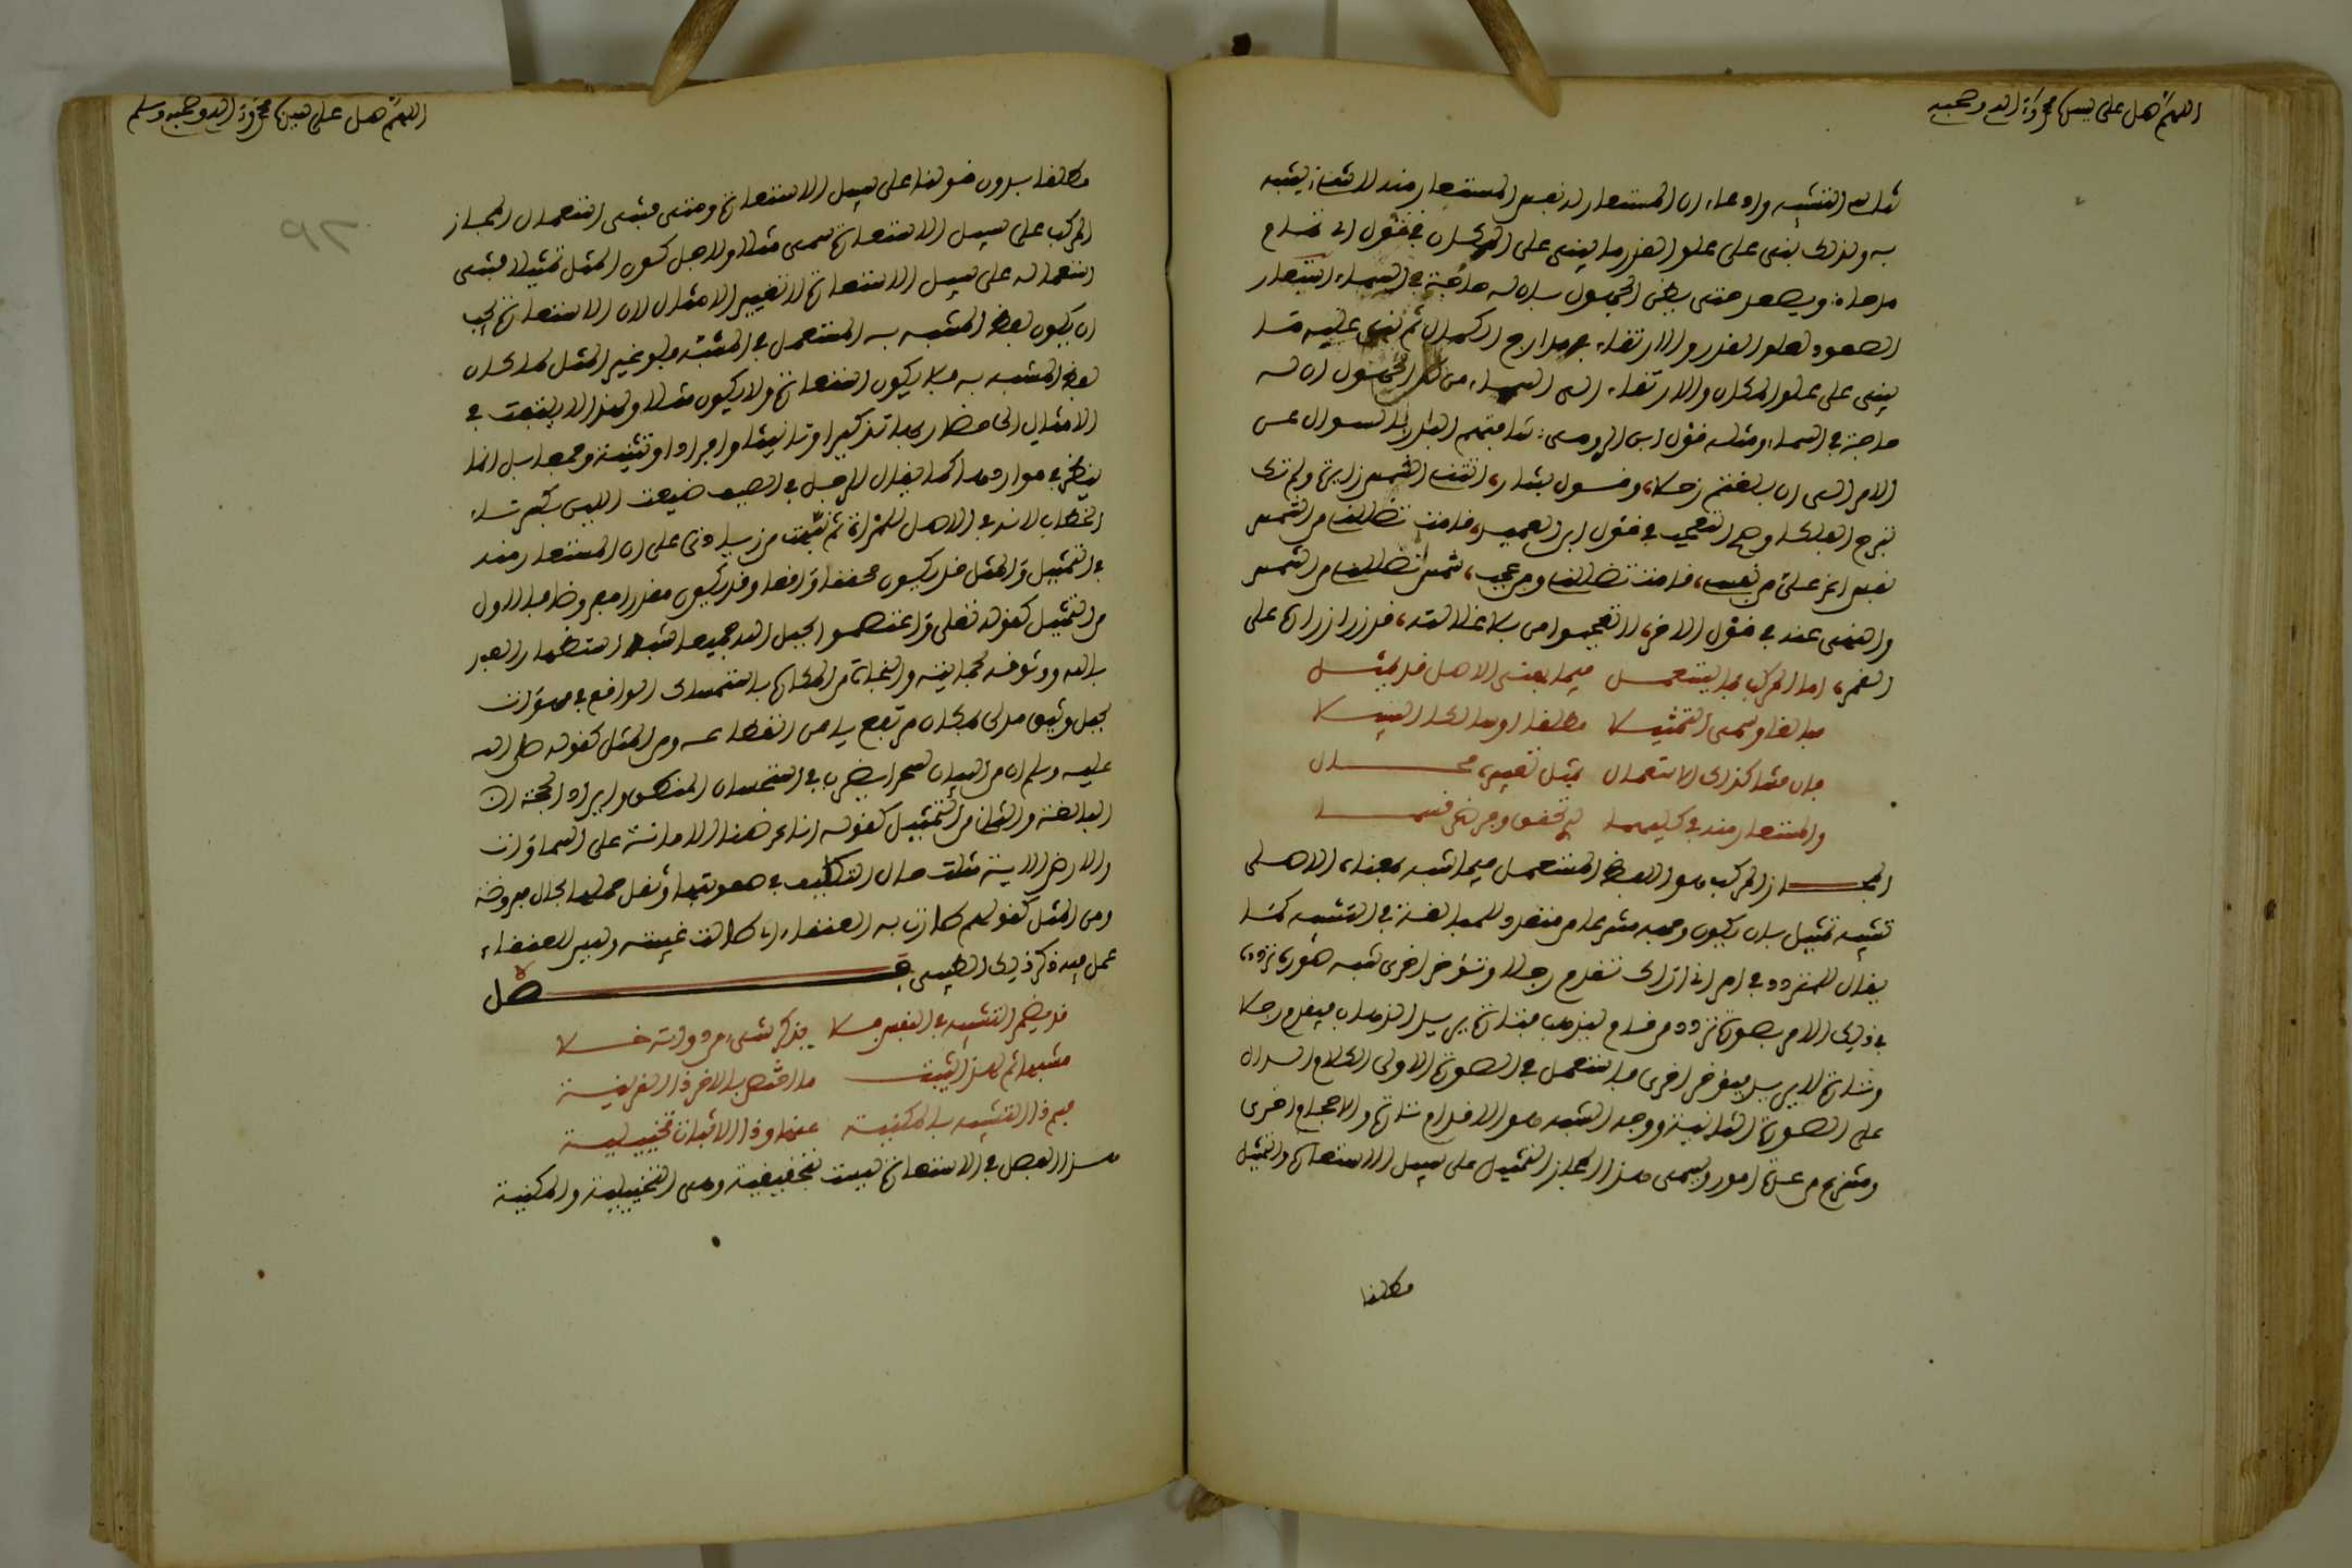 اللهم صل على سيدنا محمد وآله وصحبه
تناسى التشبيه وادعاء ان المستعار له نفس المستعار منه لا شيء يشبه
به ولذلك يبنى على علو القدر ما يبنى على المكان في قول ابي تمام
ويصعد حتى يظن الجهول بان له حاجة في السماء استعار
الصعود لعلو القدر والارتقاء في مدارج الكمال ثم بنى عليه ما
يبنى على علو المكان والارتقاء الى السماء من ظن الجهول ان له
حاجة في السماء ومثله قول ابن الرومي
الامر الى ان بلغتم زحلا، وقول بشار، اتتني الشمس زائرة ولم تك
تبرح الفلكا وصح التعجب في قول ابن العميد، قامت تظللني من الشمس
نفس اعز علي من نفسي، قامت تظللني ومن عجب، شمس تظللني من الشمس
والنهي عنه في قول الاخر، لا تعجبوا من بلا غلالته، قد زر ازراره على
القمر، اما المركب فما يستعمل فيما بمعنى الاصل قد يمثل
مبالغا وسمي التمثيلا مطلقا او سالكا السبيلا
فان فشا كذلك الاستعمال بمثل تغييره محال
والمستعار منه في كليهما لتحقق وفرض قسما
المجاز المركب هو اللفظ المستعمل فيما شبه بمعناه الاصلي
تشبيه تمثيل بان يكون وجهه منتزعا من متعدد للمبالغة في التشبيه كما
يقال للمتردد في امر اني اراك تقدم رجلا وتؤخر اخرى شبه صورة تردده
في ذلك الامر بصورة تردد من قام ليذهب فتارة يريد الذهاب فيقدم رجلا
وتارة لا يريد فيؤخر اخرى فاستعمل في الصورة الاولى الكلام الدال
على الصورة الثانية ووجه الشبه هو الاقدام تارة والاحجام اخرى
ومنتزع من عدة امور ويسمى هذا المجاز التمثيل على سبيل الاستعارة والتمثيل
مطلقا
اللهم صل على سيدنا محمد وآله وصحبه وسلم
مطلقا بدون قولنا على سبيل الاستعارة ومتى فشى استعمال المجاز
المركب على سبيل الاستعارة سمي مثلا ولاجل كون المثل تمثيلا فشى
استعماله على سبيل الاستعارة لا تغيير الامثال لان الاستعارة يجب
ان يكون لفظ المشبه به المستعمل في المشبه فلو غير المثل لما كان
لفظ المشبه به فلا يكون استعارة ولا يكون مثلا ولهذا لا يلتفت في
الامثال الى مضاربها تذكيرا وتانيثا وافرادا وتثنية وجمعا بل انما
ينظر في مواردها كما يقال للرجل في الصيف ضيعت اللبن بكسر تاء
الخطاب لانه في الاصل للمرأة ثم نبهت من زيادتي على ان المستعار منه
في التمثيل والمثل قد يكون محققا واقعا وقد يكون مقدرا مفروضا فالاول
من التمثيل كقوله تعلى واعتصموا بحبل الله جميعا شبه استظهار العبد
بالله ووثوقه بحمايته والنجاة من المكاره باستمساك الواقع في مهواة
بحبل وثيق مدلى من مكان مرتفع يامن انقطاعه ومن المثل كقوله صلى الله
عليه وسلم ان من البيان لسحرا يضرب في استحسان المنطق وايراد الحجة
البالغة والثاني من التمثيل كقوله انا عرضنا الامانة على السماوات
والارض الاية مثلت حال التكليف في صعوبتها وثقل حملها بحال مفروضة
ومن المثل كقولهم طارت به العنقاء اي طالت غيبته وليس للعنقاء
عمل فيه ذكر ذلك الطيبي
فصل
قد يضمر التشبيه في النفس فلا يذكر شيء من دواته خلا
مشبها ثم لهذا اثبت ما اختص بالاخر ذا القرينة
فسم ذا التشبيه بالمكنية عنها وذا الاثبات تخييلية
هذا الفصل في الاستعارة ليست بتحقيقية وهي التخييلية والمكنية